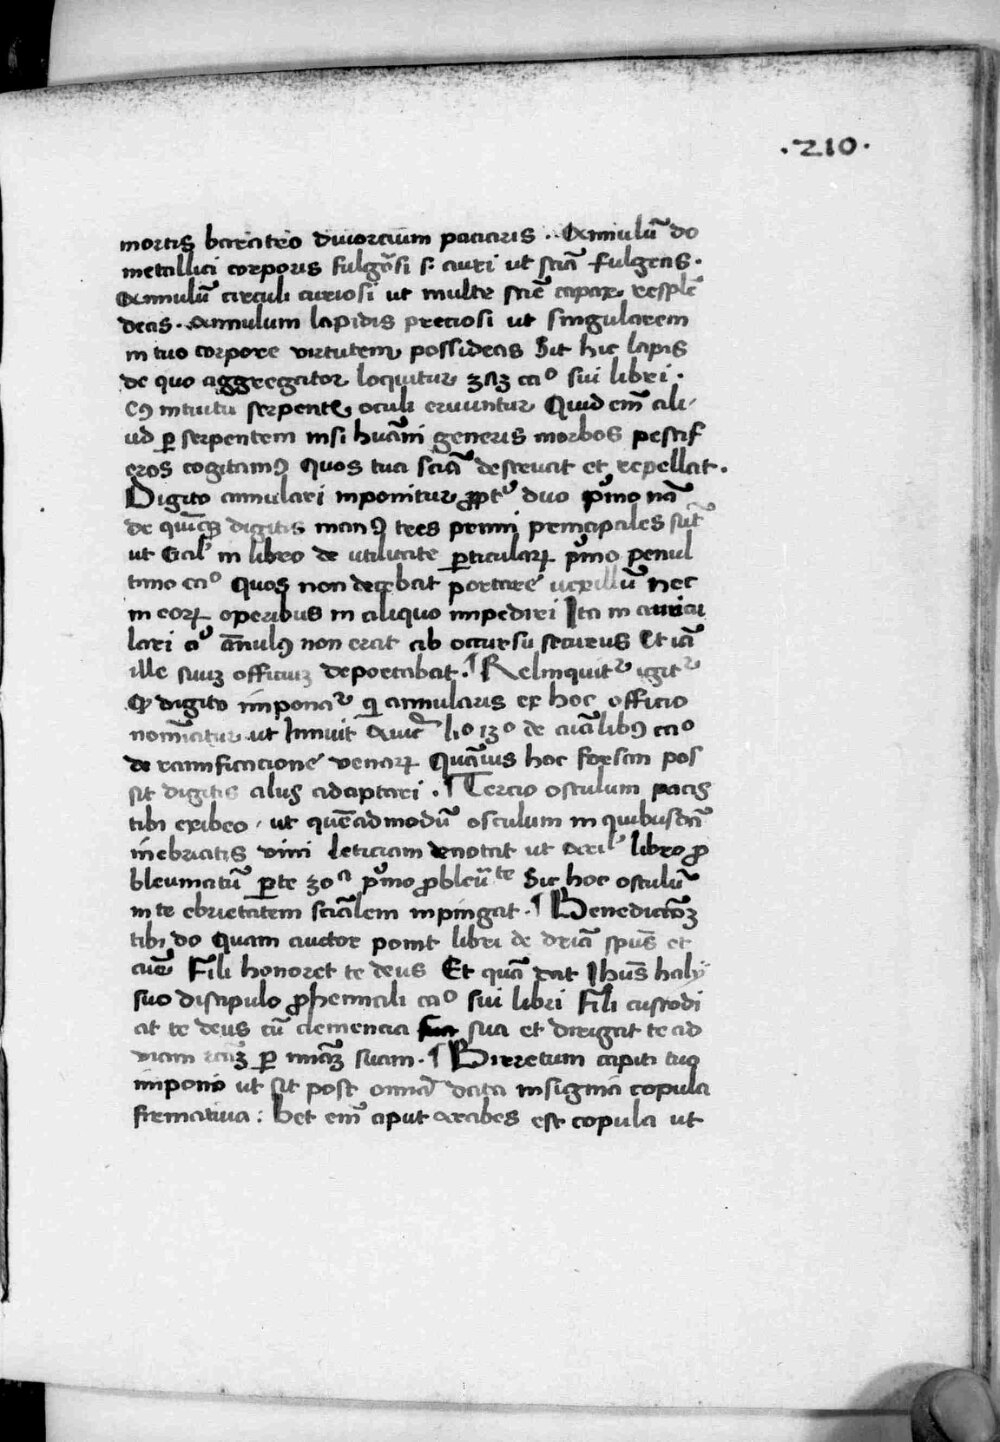 .210.
mortis baratro diuorcium paciaris . Annulū do
metallici corporis fulgōsi s. auri ut sciā fulgeas .
Annulū circuli curiosi ut multe sciē capax resplē
deas . annulum lapidis preciosi ut singularem
in tuo corpore virtutem possideas Sit hic lapis
de quo aggregator loquitur 323 caº sui libri .
Cꝯ intuitu serpentū oculi eruuntur Quid em̄ ali
ud ꝑ serpentem nisi huāni generis morbos pestif
eros cogitamꝯ Quos tua sciā destruat et repellat .
Digito annulari inponitur ꝓpt duo pͥmo nā
de quīqꝫ digitis manꝯ tres primi principales sūt
ut Galˡ in libro de utilitate ꝑticularꝝ pͥmo penul
timo caº Quos non decebat portare uexillū nec
in eorꝝ operibus in aliquo impediri Ita in auricu
lari annulꝯ non erat ab occursu securus Et iā
ille suuꝫ officiuꝫ deportabat . ¶ Relinquitʳ igitʳ
digito imponaʳ qi annularis ex hoc officio
nomīatur ut Innuit Auicͤ liº 13º de aīalibꝯ caº
de ramificacione venarꝝ Quāuis hoc forsan pos
sit digitis alijs adaptari . ¶ Tercio osculum pacis
tibi exibeo , ut quēadmodū osculum in quibusdā
inebriatis vini leticiam denotat ut Arilˡ libro ꝓ
bleumatū ꝑte 30ª pͥmo ꝓbleūᵗᵉ Sic hoc osculū
in te ebrietatem sciālem inpingat . ¶ Benedictōꝫ
tibi do Quam auctor ponit libri de driā spūs et
aīe Fili honoret te deus Et quā dat Ihūs haly
suo discipulo ꝓhennali caº sui libri Fili custodi
at te deus cū clemencia sua et dirigat te ad
viam ꝑ miāꝫ suam . ¶ Birretum capiti tuo
impono ut sit post omīa data insignia copula
firmatiua : het em̄ aput arabes est copula ut